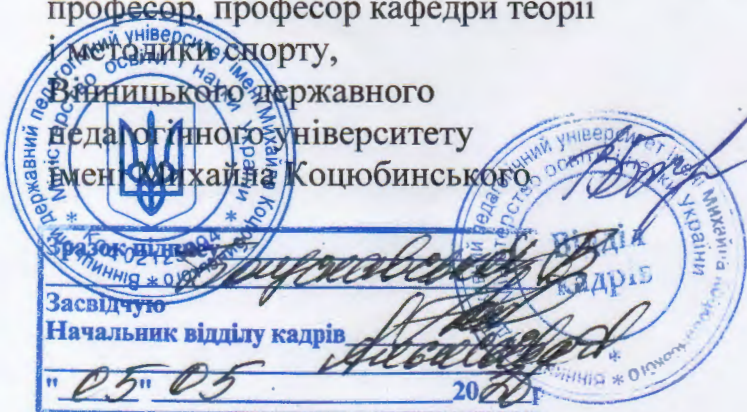 професор, професор кафедри теорії
і методики спорту,
Вінницького державного
педагогічного університету
імені Михайла Коцюбинського
Зразок підпису
Засвідчую
Начальник відділу кадрів
"05" 05 2020 р
Міністерство освіти і науки України
Відділ
кадрів